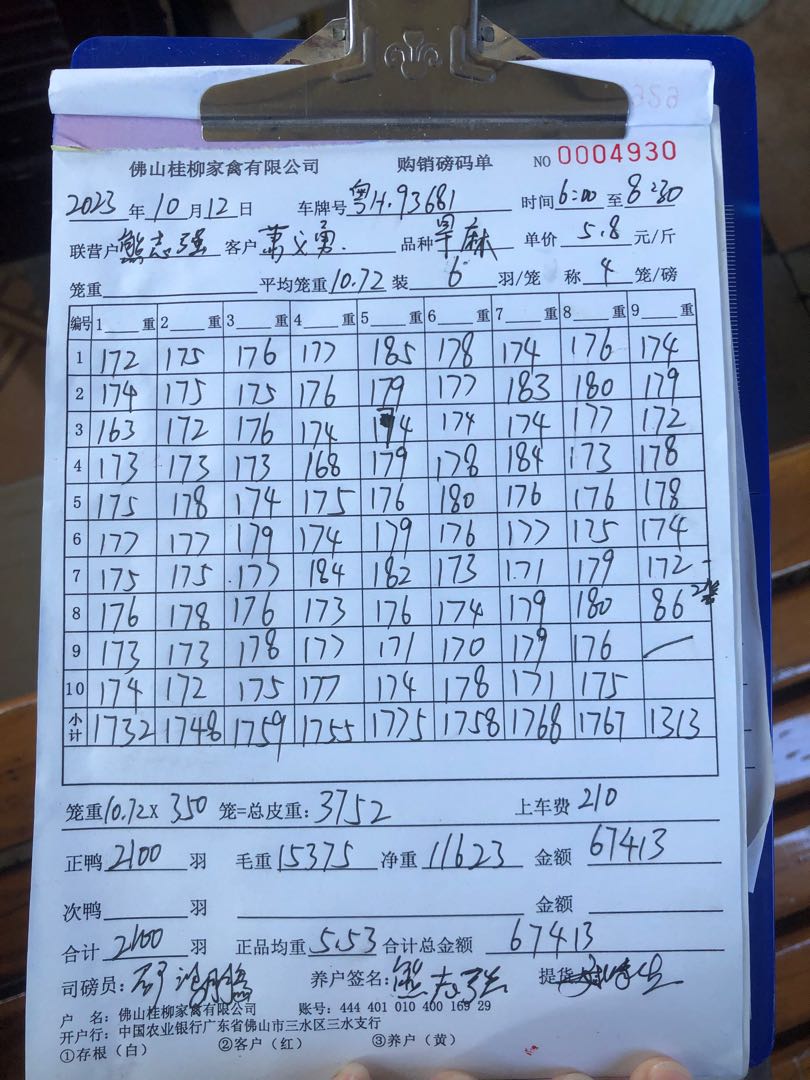 佛山桂柳家禽有限公司 购销磅码单 NO 0004930
2023 年 10 月 12 日 车牌号 粤H.93681 时间 6:00 至 8:30
联营户 熊志强 客户 萧义勇. 品种 旱麻 单价 5.8 元/斤
笼重 平均笼重 10.72 装 6 羽/笼 称 4 笼/磅
编号 1 重 2 重 3 重 4 重 5 重 6 重 7 重 8 重 9 重
1 172 175 176 177 185 178 174 176 174
2 174 175 175 176 179 177 183 180 179
3 163 172 176 174 174 174 174 177 172
4 173 173 173 168 179 178 184 173 178
5 175 178 174 175 176 180 176 176 178
6 177 177 179 174 179 176 177 175 174
7 175 175 177 184 182 173 171 179 172
8 176 178 176 173 176 174 179 180 86
9 173 173 178 177 171 170 179 176
10 174 172 175 177 174 178 171 175
小计 1732 1748 1759 1755 1775 1758 1768 1767 1313
笼重 10.72 X 350 笼=总皮重: 3752 上车费 210
正鸭 2100 羽 毛重 15375 净重 11623 金额 67413
次鸭 羽 金额
合计 2100 羽 正品均重 5.53 合计总金额 67413
司磅员: 养户签名: 熊志强 提货
户 名: 佛山桂柳家禽有限公司 账号: 444 401 010 400 169 29
开户行: 中国农业银行广东省佛山市三水区三水支行
①存根（白） ②客户（红） ③养户（黄）